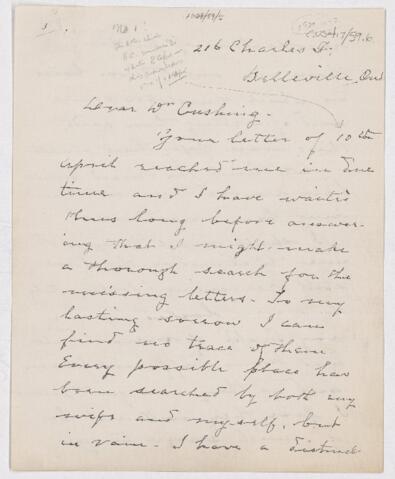 216 Charles St.
Belleville, Ont
Dear Dr Cushing.
Your letter of 10th
April reached me in due
time and I have waited
thus long before answer-
ing that I might make
a thorough search for the
missing letters. To my
lasting sorrow I can
find no trace of them
Every possible place has
been searched by both my
wife and myself, but
in vain. I have a distinct